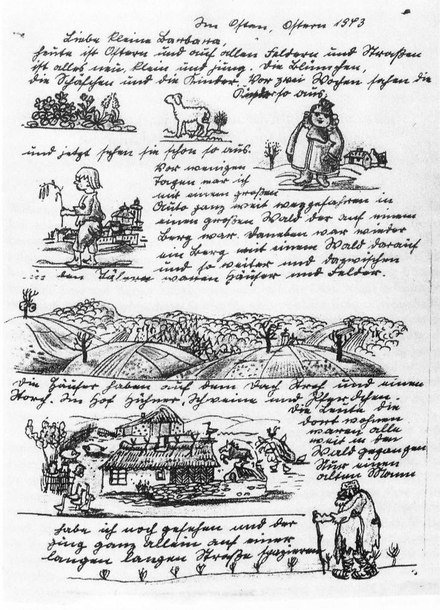 Im Osten, Ostern 1943
Liebe kleine Barbara,
heute ist Ostern und auf allen Feldern und Straßen
ist alles neu, klein und jung. Die Blümchen,
die Schäfchen und die Kinder. Vor zwei Wochen sahen die
Kinder so aus,
und jetzt sehen sie schon so aus.
Vor wenigen
Tagen war ich
mit einem großen
Auto ganz weit weggefahren in
einen großen Wald der auf einem
Berg war. Daneben war wieder
ein Berg mit einem Wald darauf
und so weiter und dazwischen
in den Tälern waren Häuser und Felder.
Die Häuser haben auf dem Dach Stroh und einen
Storch. Im Hof Hühner, Schweine und Pferdchen.
Die Leute die
dort wohnen
waren alle
weit in den
Wald gegangen
Nur einen
alten Mann
habe ich noch gesehen und der
ging ganz allein auf einer
langen langen Straße spazieren